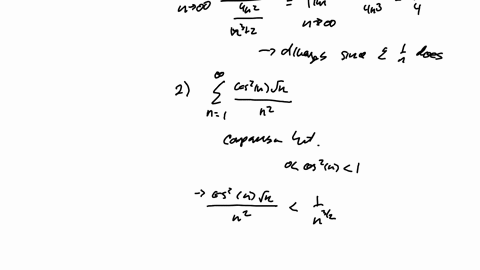 n→∞ 4n² / n³+2 = lim n→∞ 4n³ 4
→ diverges since Σ 1/n does
2) ∞ Σ n=1 cos²(n)√n / n²
comparison test.
0<cos²(n)<1
→ cos²(n)√n / n² < 1 / n^3/2